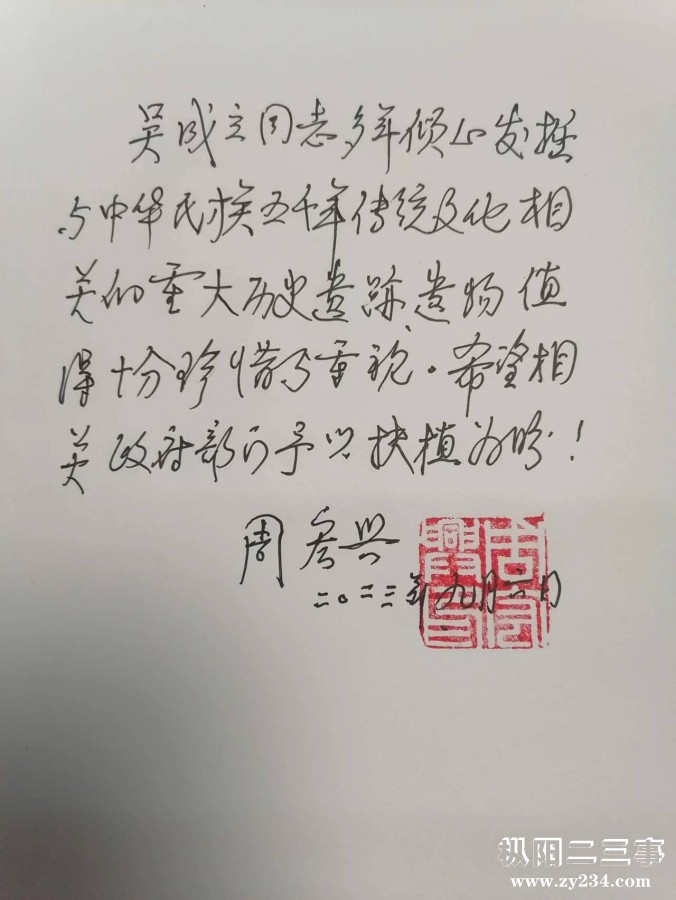 吴成立同志多年倾心发掘
与中华民族五千年传统文化相
关的重大历史遗跡、遗物值
得十分珍惜与重视。希望相
关政府部门予以扶植为盼！
周兴
二〇二三年九月六日
枞阳二三事
www.zy234.com